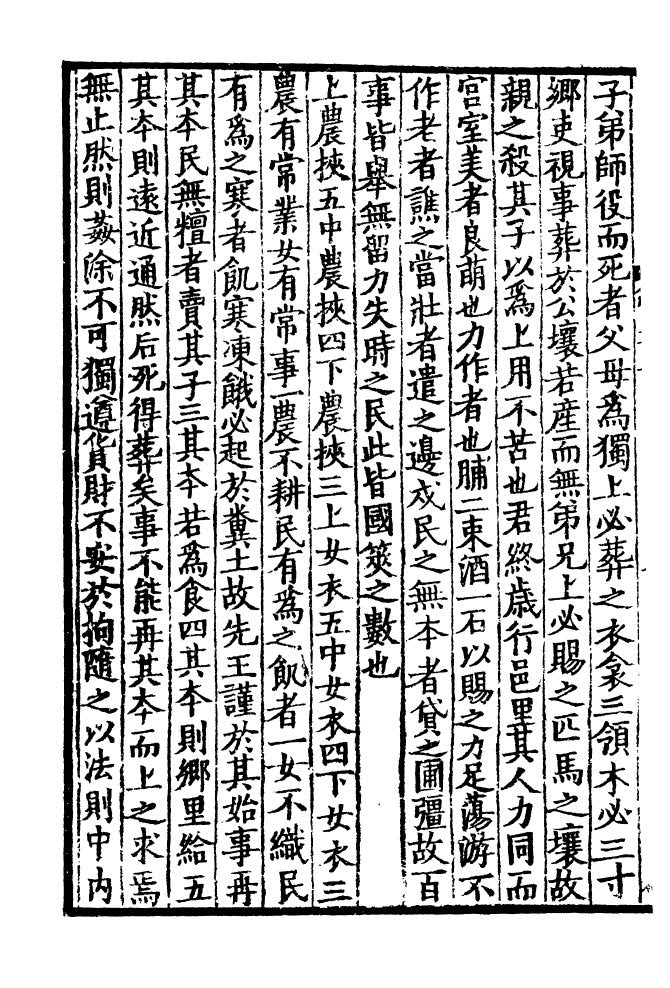 子弟師役而死者父母爲獨上必葬之衣衾三領木必三寸
鄉吏視事葬於公壤若産而無弟兄上必賜之匹馬之壤故
親之殺其子以爲上用不苦也君終歲行邑里其人力同而
宫室美者良萌也力作者也脯二束酒一石以賜之力足蕩游不
作老者譙之當壯者遣之邊戍民之無本者貸之圃彊故百
事皆舉無留力失時之民此皆國筴之數也
上農挾五中農挾四下農挾三上女衣五中女衣四下女衣三
農有常業女有常事一農不耕民有爲之飢者一女不織民
有爲之寒者飢寒凍餓必起於糞土故先王謹於其始事再
其本民無𥼷者賣其子三其本若爲食四其本則鄉里給五
其本則遠近通然后死得葬矣事不能再其本而上之求焉
無止然則姦涂不可獨遵貨財不安於拘隨之以法則中内